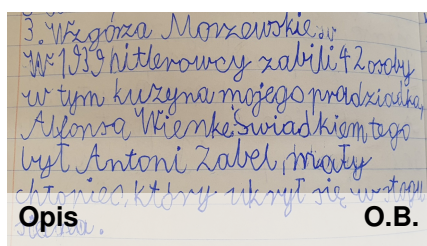 3. Wzgórza Morzewskie.
W 1939 hitlerowcy zabili 42 osoby
w tym kuzyna mojego pradziadka,
Alfonsa Wienke. Świadkiem tego
był Antoni Zabel, mały
chłopiec, który ukrył się w stogu
siana.
Opis O.B.